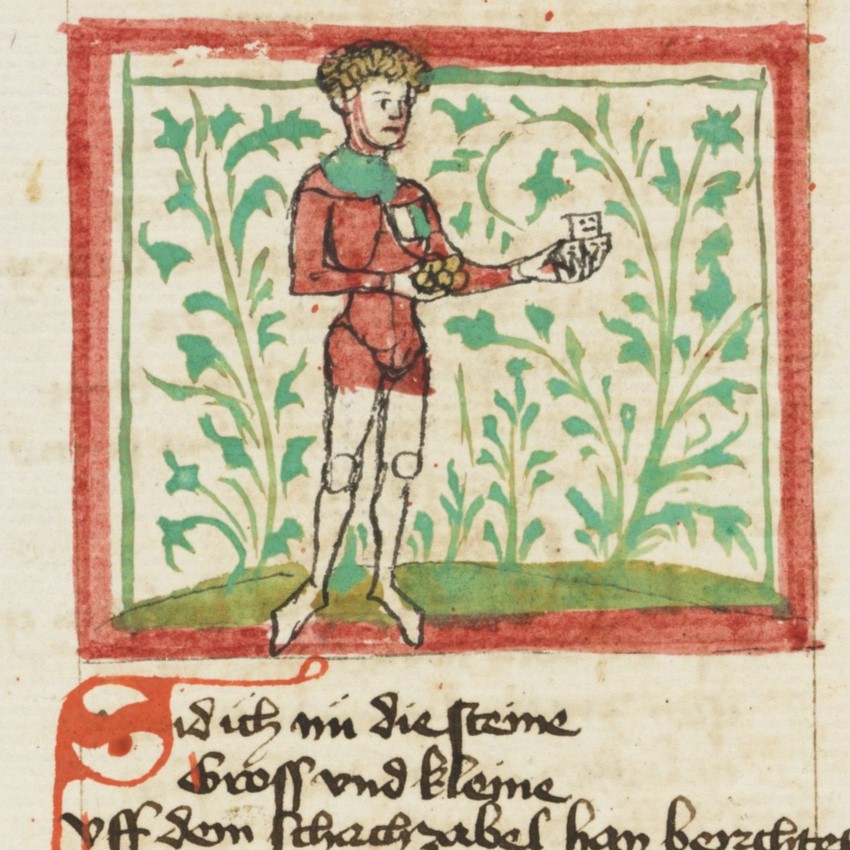 Sid ich nu die steine
Gross vnd kleine
vff dem schachzabel han berichtet